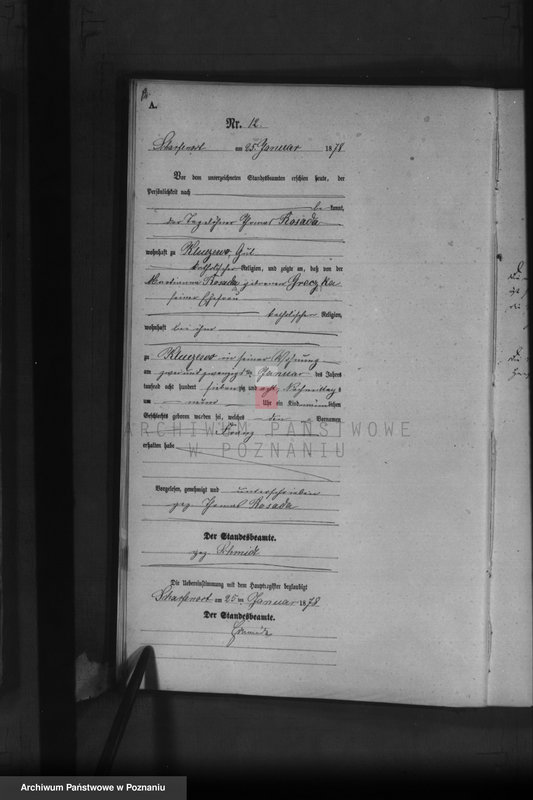 12.
A.
Nr. 12.
Scharfenort am 25ten Januar 1878
Vor dem unterzeichneten Standesbeamten erschien heute, der
Persönlichkeit nach
be kannt,
der Tagelöhner Thomas Rosada
wohnhaft zu Kluczewo Gut
katholischer Religion, und zeigte an, daß von der
Marianna Rosada geborenen
seiner Ehefrau
katholischer Religion,
wohnhaft bei ihm
zu Kluczewo in seiner Wohnung
am zwei und zwanzigsten Januar des Jahres
tausend acht hundert siebenzig und acht, Nachmittags
um neun Uhr ein Kind männlichen
Geschlechts geboren worden sei, welches den Vornamen
Franz
erhalten habe
ARCHIWUM PAŃSTWOWE
W POZNANIU
Vorgelesen, genehmigt und unterschrieben
gez. Thomas Rosada
Der Standesbeamte.
gez. Schmidt
Die Uebereinstimmung mit dem Hauptregister beglaubigt
Scharfenort am 25ten Januar 1878
Der Standesbeamte.
Schmidt
Archiwum Państwowe w Poznaniu